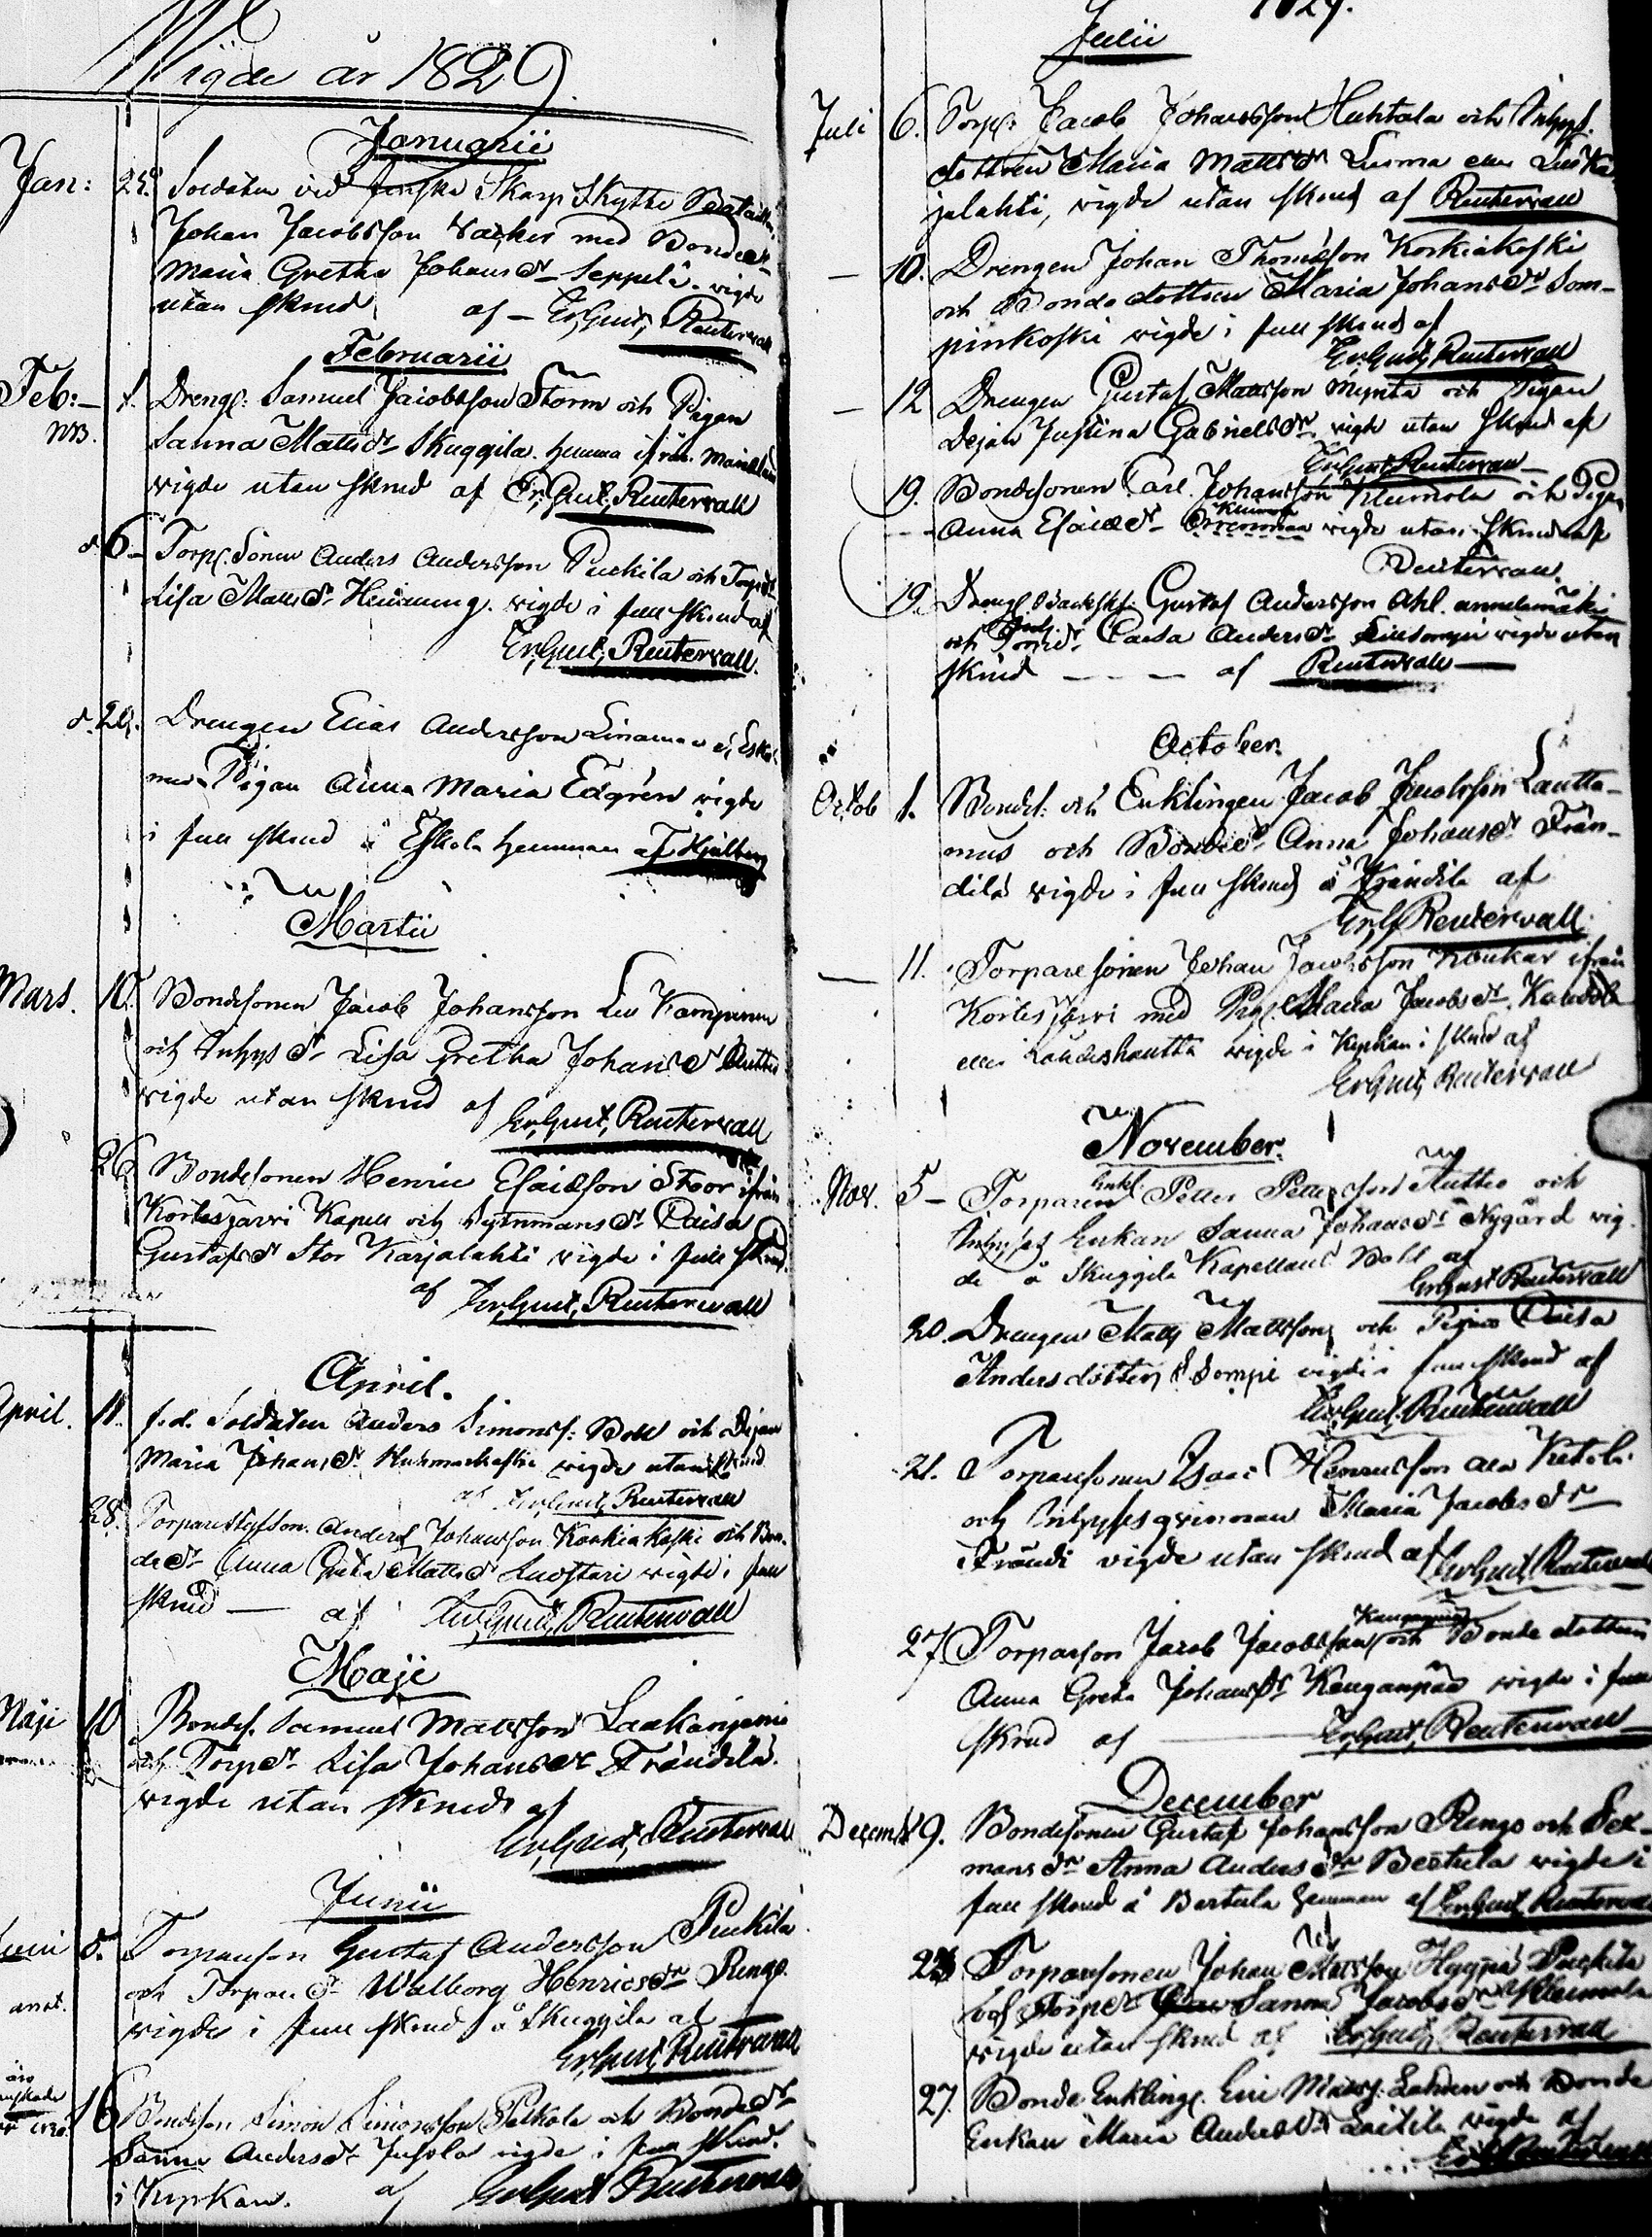 Wigde år 1829.
Januarii
Jan: 25. Soldaten vid Finska Skarp Skytte Bataill.
Johan Jacobsson Vacker med Bonded:r
Maria Gretha Johansd:r Seppelä. vigde
utan skrud af Er. Gust. Reutervall
Februarii
Feb: 1. Drengs: Samuel Jacobsson Storm och Pigan
NB. Sanna Matsd:r Skuggila hemma ifrån
vigde utan skrud af Er. Gust. Reutervall
d. 6. Torps. Sonen Anders Andersson Puckila och Torpd:r
Lisa Matsd:r vigde i full skrud af
Er. Gust. Reutervall.
d. 24. Drengen Elias Andersson
med Pigan Anna Maria Edgrén vigde
i full skrud å Eskola hemman af Hjelberg
Martii
Mars. 10. Bondesonen Jacob Johansson Kampinen
och Inhysd:r Lisa Gretha Johansd:r
vigde utan skrud af Er. Gust. Reutervall
26 Bondesonen Henric Esaiesson Stoor ifrån
Kortesjärvi Kapell och Caisa
Gustafsd:r Stor Karjalahti vigde i full skrud.
af Er. Gust. Reutervall
April.
April. 11. f.d. Soldaten Anders Simonss: Boll och Pigan
Maria Johansd:r vigde utan skrud
af Er. Gust. Reutervall
28. Torpare Anders Johansson Korkiakoski och Bon-
ded:r Anna Greta Matsd:r Luostari vigde i full
skrud — af Er. Gust. Reutervall
Maji
Maji 10 Bondes. Samuel Mattsson Laakaniemi
och Torpd:r Lisa Johansd:r Frändilä.
vigde utan skrud af
Er. Gust. Reutervall
Junii
Juni 5. Torparson Gustaf Andersson Puckila
och Torpared:r Walborg Henricsd:r Rengo.
vigde i full skrud å Skuggila af
Er. Gust. Reutervall
16 Bondeson Simon Simonsson Palkola och Bonded:r
Sanna Andersd:r Jussila vigde i full skrud.
i Kyrkan. af Er. Gust. Reutervall
1829.
Julii
Juli 6. Torps: Jacob Johansson Huhtala och Inhys.
dottren Maria Mattsd:r Luoma eller
jalahti, vigde utan skrud af Reutervall
— 10. Drengen Johan Thomasson Korkiakoski
och Bondedottren Maria Johansd:r Som-
pinkoski vigde i full skrud af
Er. Gust. Reutervall
— 12 Drengen Gustaf Mattsson Mynta och Pigan
Dejan Justina Gabrielsd:r vigde utan skrud af
Er. Gust. Reutervall
19. Bondesonen Carl Johansson Klemola och Pigan
Anna Esaiæd:r vigde utan skrud af
Reutervall.
19. Dreng Gustaf Andersson Ahl. Annalamäki
och Caisa Andersd:r vigde utan
skrud — — — af Reutervall —
October.
Octob 1. Bondes: och Enklingen Jacob Jacobsson Lautta-
mus och Bonded:r Anna Johansd:r Frän-
dilä vigde i full skrud å Frändilä af
Er. G. Reutervall
— 11. Torparesonen Johan Jacobsson Kaukas ifrån
Kortesjärvi med Pig. Maria Jacobsd:r
eller vigde i Kyrkan i skrud af
Er. Gust. Reutervall
November.
Nov. 5 — Torparen Enkl. Petter Pettersson Autio och
Inhyses Enkan Sanna Johansd:r Nygård vig-
de å Skuggila Kapellans Boll af
Er. Gust. Reutervall
20. Drengen Matts Mattsson och Pigan Caisa
Andersdotter Sompi vigde i full skrud af
Er. Gust. Reutervall
21. Torparesonen Isaac Henricsson Ala Ketola
och Inhysesqvinnan Maria Jacobsd:r
Frändi vigde utan skrud af Er. Gust. Reutervall
27. Torparson Jacob Jacobsson Kangas och Bondedottren
Anna Greta Johansd:r Kanganpää vigde i full
skrud af — Er. Gust. Reutervall
December
Decemb 9. Bondesonen Gustaf Johansson Rengo och Sex-
mansd:r Anna Andersd:r Bertula vigde i
full skrud å Bertula hemman af Er. Gust. Reutervall
Torparesonen Johan Mattsson Hyypiä Puckila
och Torpd:r Sanna Jacobsd:r Klemola
vigde utan skrud af Er. Gust. Reutervall
27. Bonde Enkling. Eric Matss. Lahden och Bonde
Enkan Maria Andersd:r Laitila vigde af